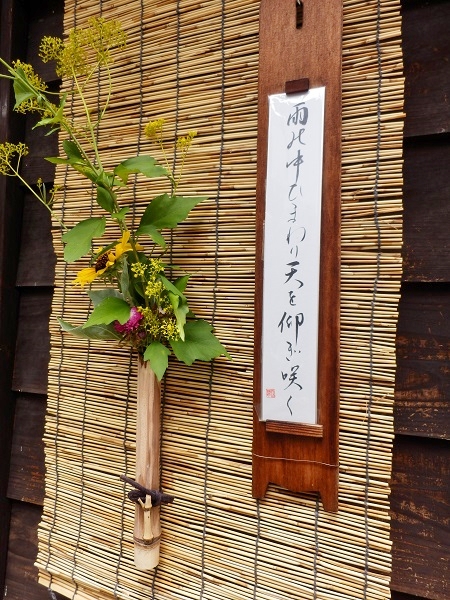 雨の中ひまわり天を仰ぎ咲く